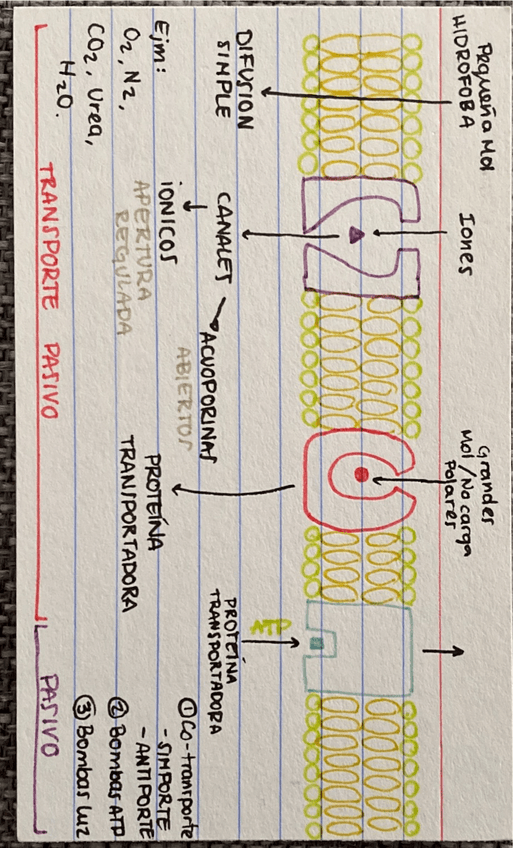 Pequeña Mol
HIDROFOBA
Iones
Grandes
Mol/No carga
Polares
DIFUSION
SIMPLE
Ejm:
O₂, N₂,
CO₂, Urea,
H₂O.
CANALES
IONICOS
APERTURA
REGULADA
ACUOPORINAS
ABIERTOS
PROTEÍNA
TRANSPORTADORA
PROTEÍNA
TRANSPORTADORA
① Co-transporte
- SIMPORTE
- ANTIPORTE
② Bombas ATP
③ Bombas luz
TRANSPORTE PASIVO
PASIVO